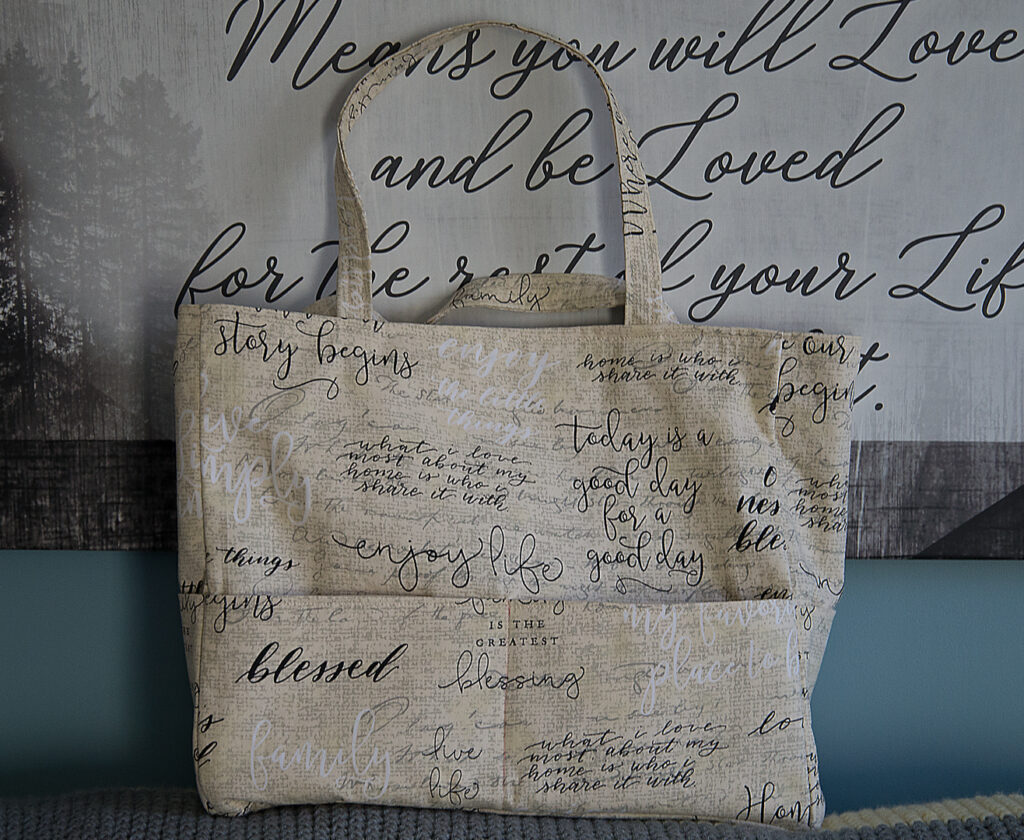 Means you will Love
and be Loved
for the rest of your Life
family
where
story begins
enjoy
the little
things
home is who i
share it with
our
begin
live
simply
what i love
most about my
home is who i
share it with
today is a
good day
for a
good day
enjoy life
things
begins
what
most
home
shar
nes
ble
IS THE
GREATEST
blessing
blessed
my favori
place to b
family
live
life
what i love
most about my
home is who i
share it with
lo
Hom